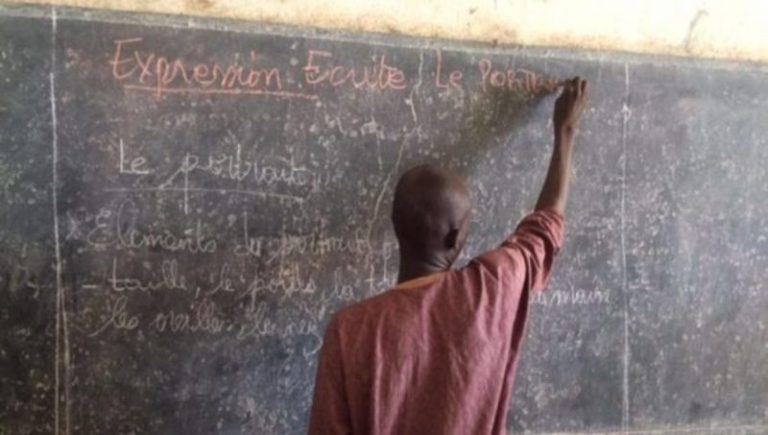 Expression Ecrite Le
Le portrait
Elements du portrait
- taille, le poids, la
les oreilles, le nez